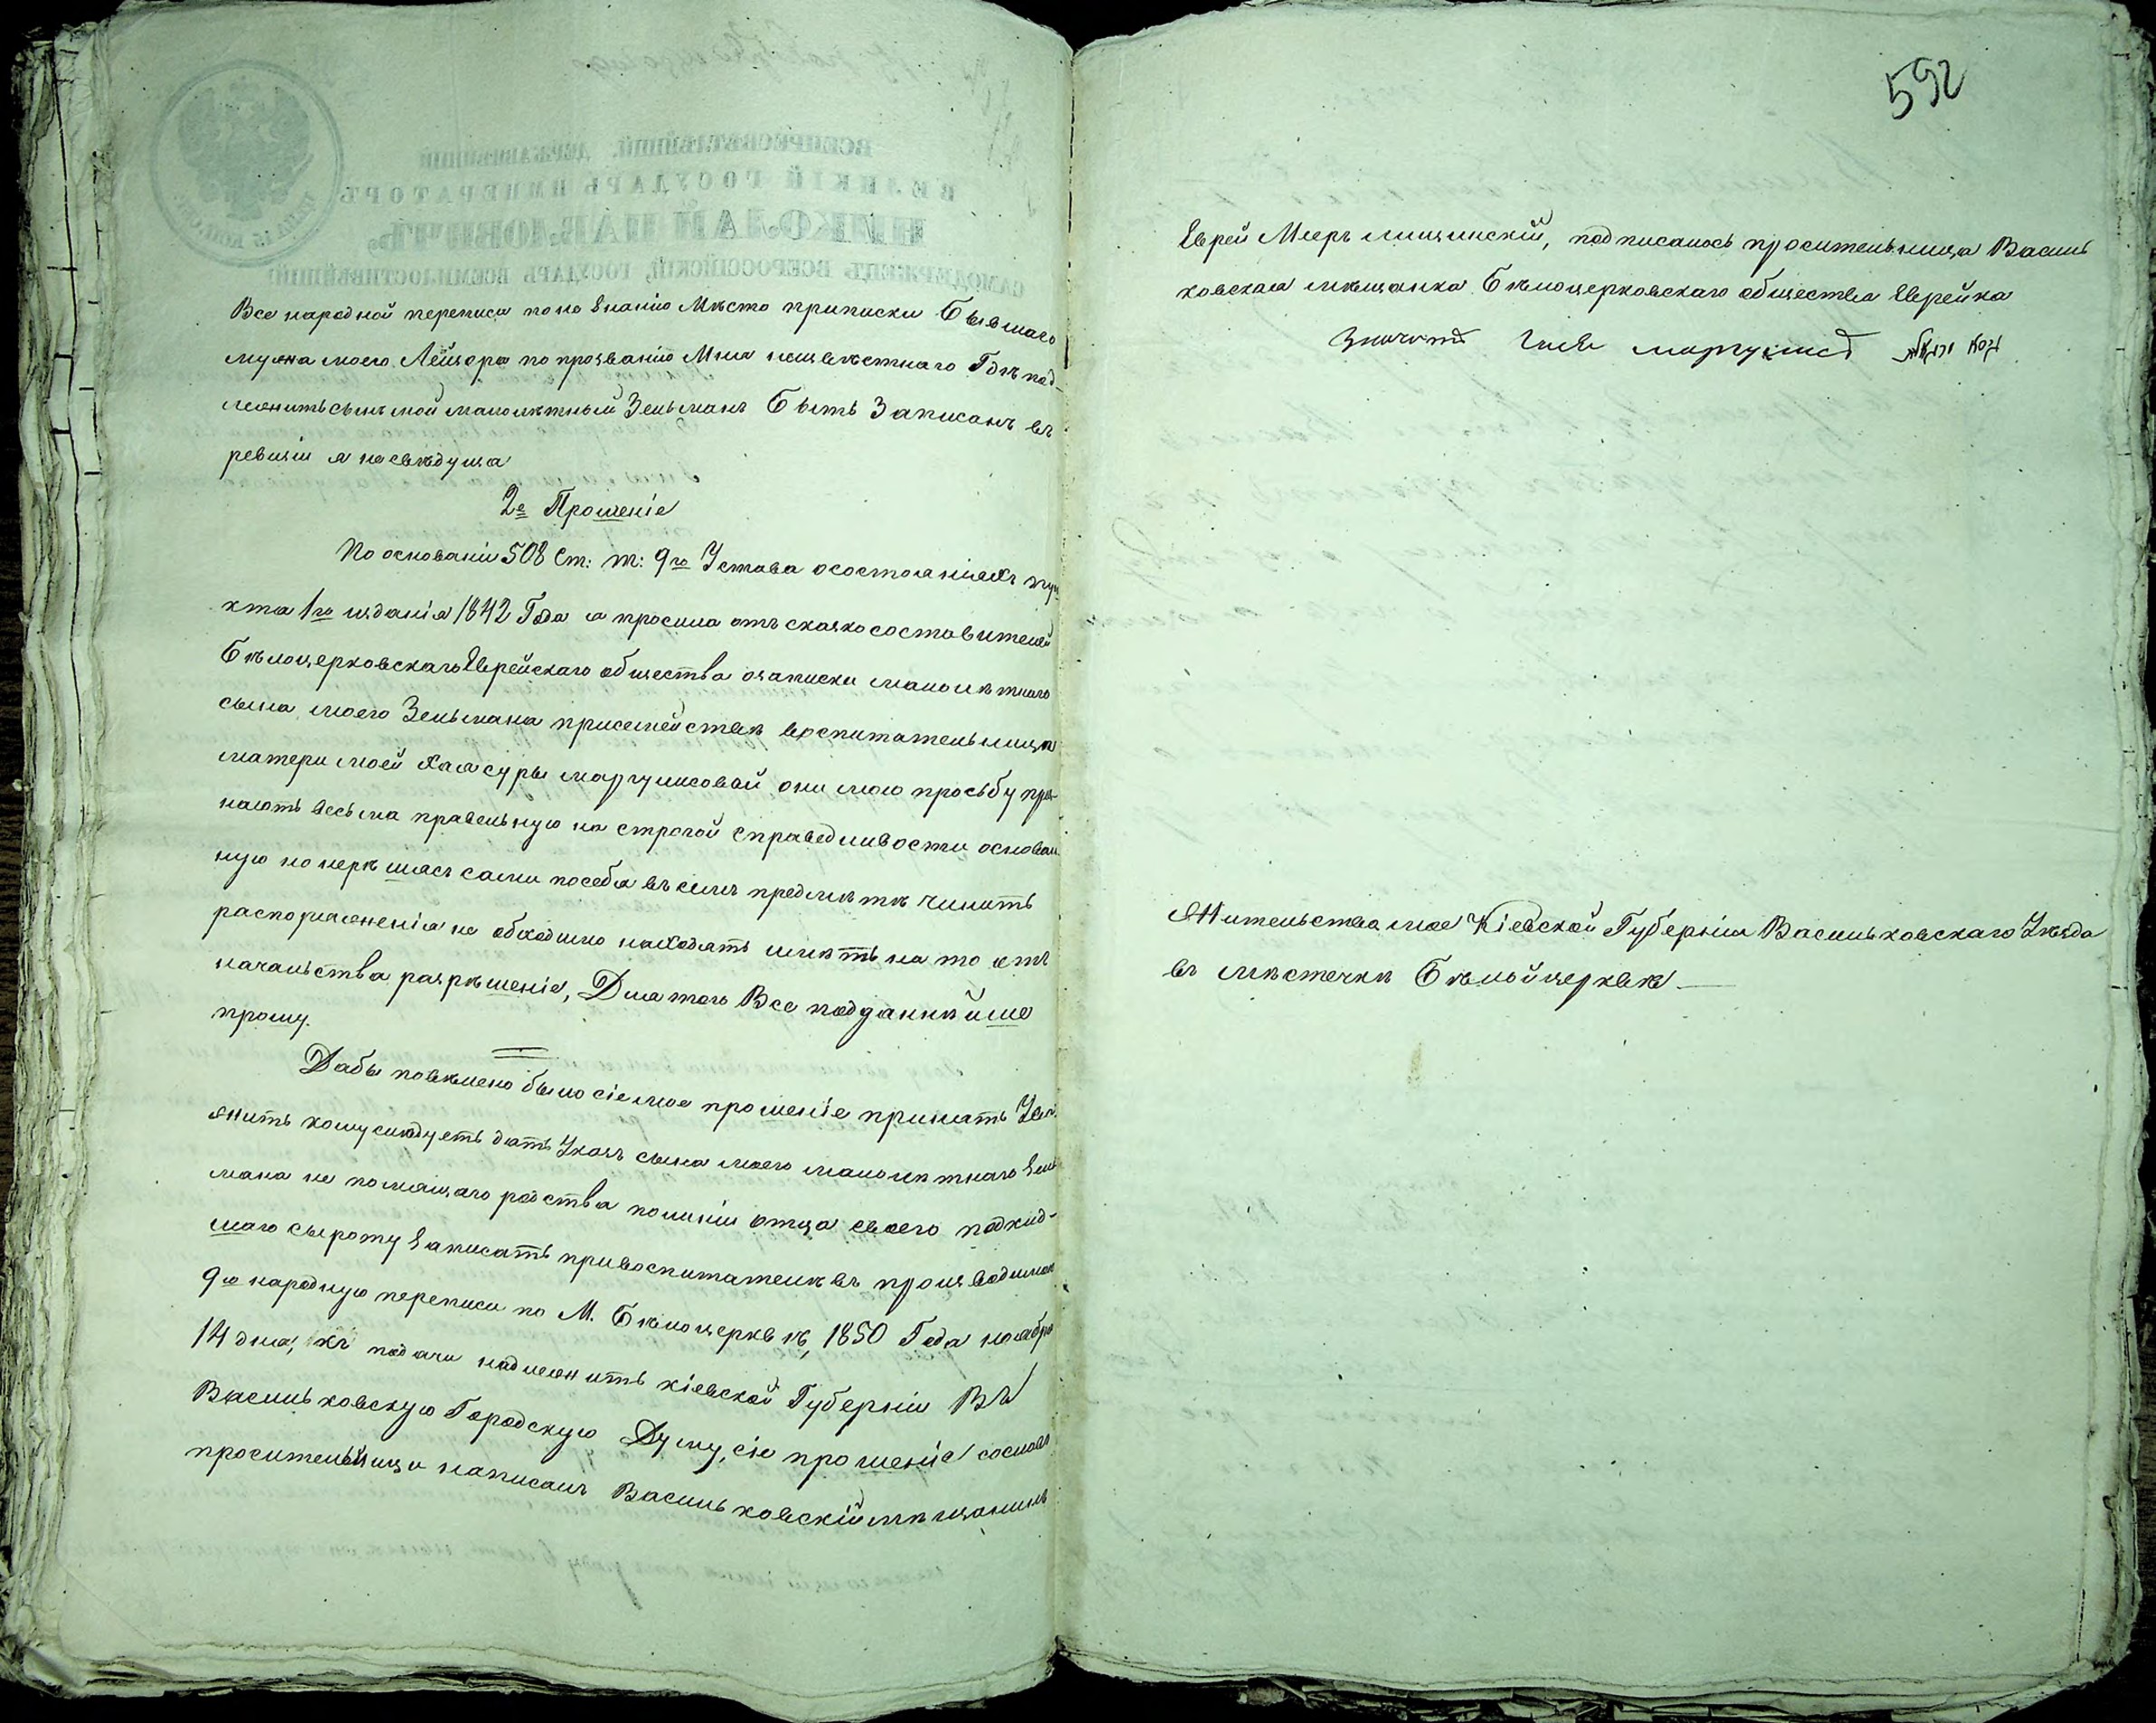 592
Все народной переписи по не Знанію Мѣсто приписки Бывшаго
мужа моего Лейзора по прозванію Мнѣ неизвѣстнаго Гдѣ под-
лежить сынъ мой малолѣтный Зельманъ Быть Записанъ въ
ревизіи я несвѣдуща
2е Прошеніе
По основаніи 508 Ст: т: 9го Устава осостояніяхъ пун
кта 1го изданія 1842 Года я просила отъ сказкосоставителей
Бѣлоцерковскаго Еврейскаго общества озаписки малолѣтнаго
сына моего Зельмана присемействѣ воспитательницѣ
матери моей Хаясуры маргулисовой они мою просьбу приз-
нають весьма правельную на строгой справедливости основан
ную но нерѣшась сами посебя въ семъ предмѣтѣ чинить
распоряженія не обходимо находять имѣть на то отъ
начальства разрѣшеніе, Для того Все подданнѣйше
прошу.
Дабы повѣлено было сіе мое прошеніе принять Ува
жить кому слѣдуеть дать Указъ сына моего малолѣтнаго Зель
мана не помнящаго родства полиніи отца своего подкид-
шаго сыроту Записать привоспитателѣ въ производимою
9ю народную переписи по М. Бѣлоцерквѣ, 1850 Года ноября
14 дня, къ подачи надлежить кіевской Губерніи Въ
Васильковскую Городскую Думу, сіе прошеніе сословъ
просительницы написалъ Васильковскій мѣщанинъ
Еврей Мееръ лищинскій, подписалось просительница Василь
ковская мѣщанка Бѣлоцерковскаго общества Еврейка
маргулисъ
Жительства мое Кіевской Губерніи Васильковскаго Уѣзда
въ мѣстечкѣ Бѣлойцерквѣ